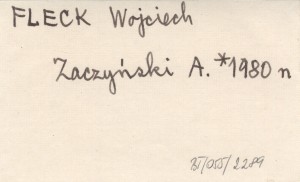 FLECK Wojciech
Zaczyński A. *1980 n
BJ/OSS/2289